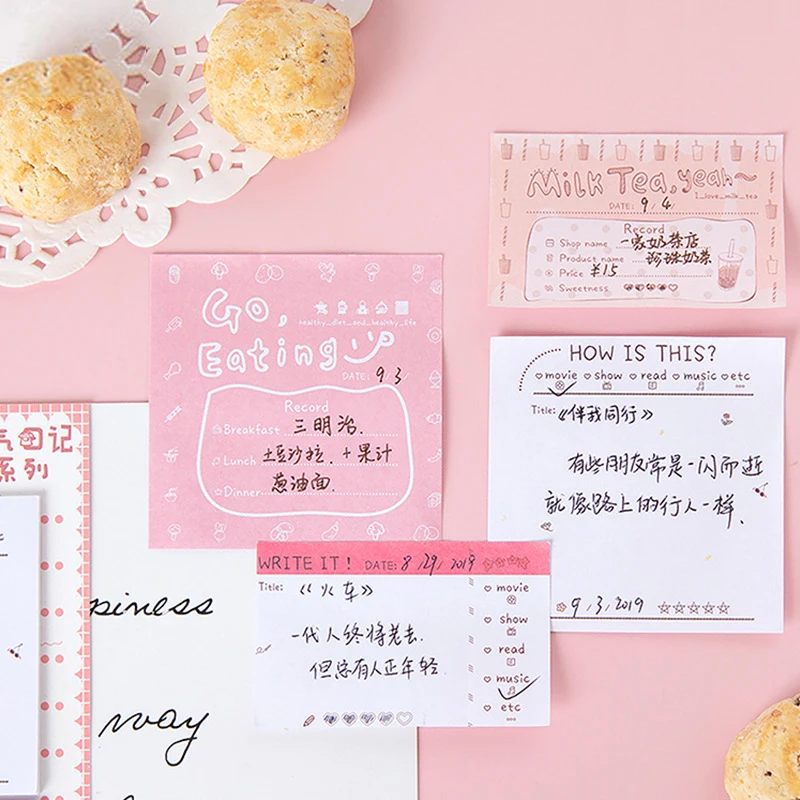 Milk Tea, yeah~
i_love_milk_tea
DATE: 9 4
Record
Shop name 一家奶茶店
Product name 珍珠奶茶
Price ¥15
Sweetness
Go,
healthy_diet_and_healthy_life
Eating
DATE: 9 3
Record
Breakfast 三明治.
Lunch 土豆沙拉. + 果汁
Dinner 葱油面.
HOW IS THIS?
movie show read music etc
Title: 《伴我同行》
有些朋友常是一闪而逝
就像路上的行人一样.
9, 3, 2019
WRITE IT! DATE: 8/29/2019
Title: 《火车》
一代人终将老去.
但总有人正年轻
movie
show
read
music
etc
气日记
系列
piness
way